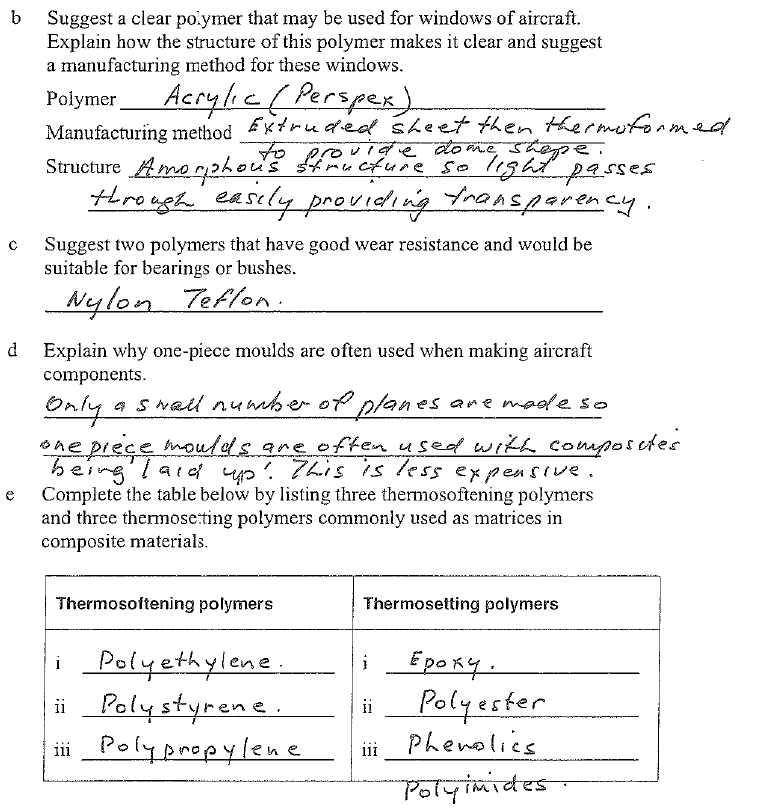 b Suggest a clear polymer that may be used for windows of aircraft.
Explain how the structure of this polymer makes it clear and suggest
a manufacturing method for these windows.
Polymer Acrylic (Perspex)
Manufacturing method Extruded sheet then thermoformed
to provide dome shape.
Structure Amorphous structure so light passes
through easily providing transparency.
c Suggest two polymers that have good wear resistance and would be
suitable for bearings or bushes.
Nylon Teflon.
d Explain why one-piece moulds are often used when making aircraft
components.
Only a small number of planes are made so
one piece moulds are often used with composites
being 'laid up'. This is less expensive.
e Complete the table below by listing three thermosoftening polymers
and three thermosetting polymers commonly used as matrices in
composite materials.
Thermosoftening polymers Thermosetting polymers
i Polyethylene. i Epoxy.
ii Polystyrene. ii Polyester
iii Polypropylene iii Phenolics
Polyimides.